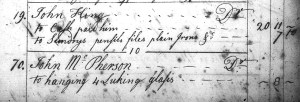 19. John King Dr
to Cash paid him
to Simonds pensils files plain Irons &c 20 11
10
70. John McPherson Dr
to hanging 4 Luking glass